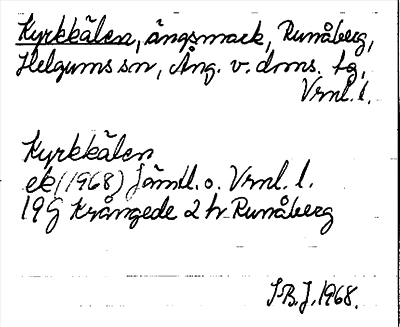 Kyrkkälen, ängsmark, Runåberg,
Helgums sn, Ång. v. dms. tg,
Vrnl. l.
Kyrkkälen
ek (1968) Jämtl. o. Vrnl. l.
19G Krångede 2 h Runåberg
S.B.J. 1968.